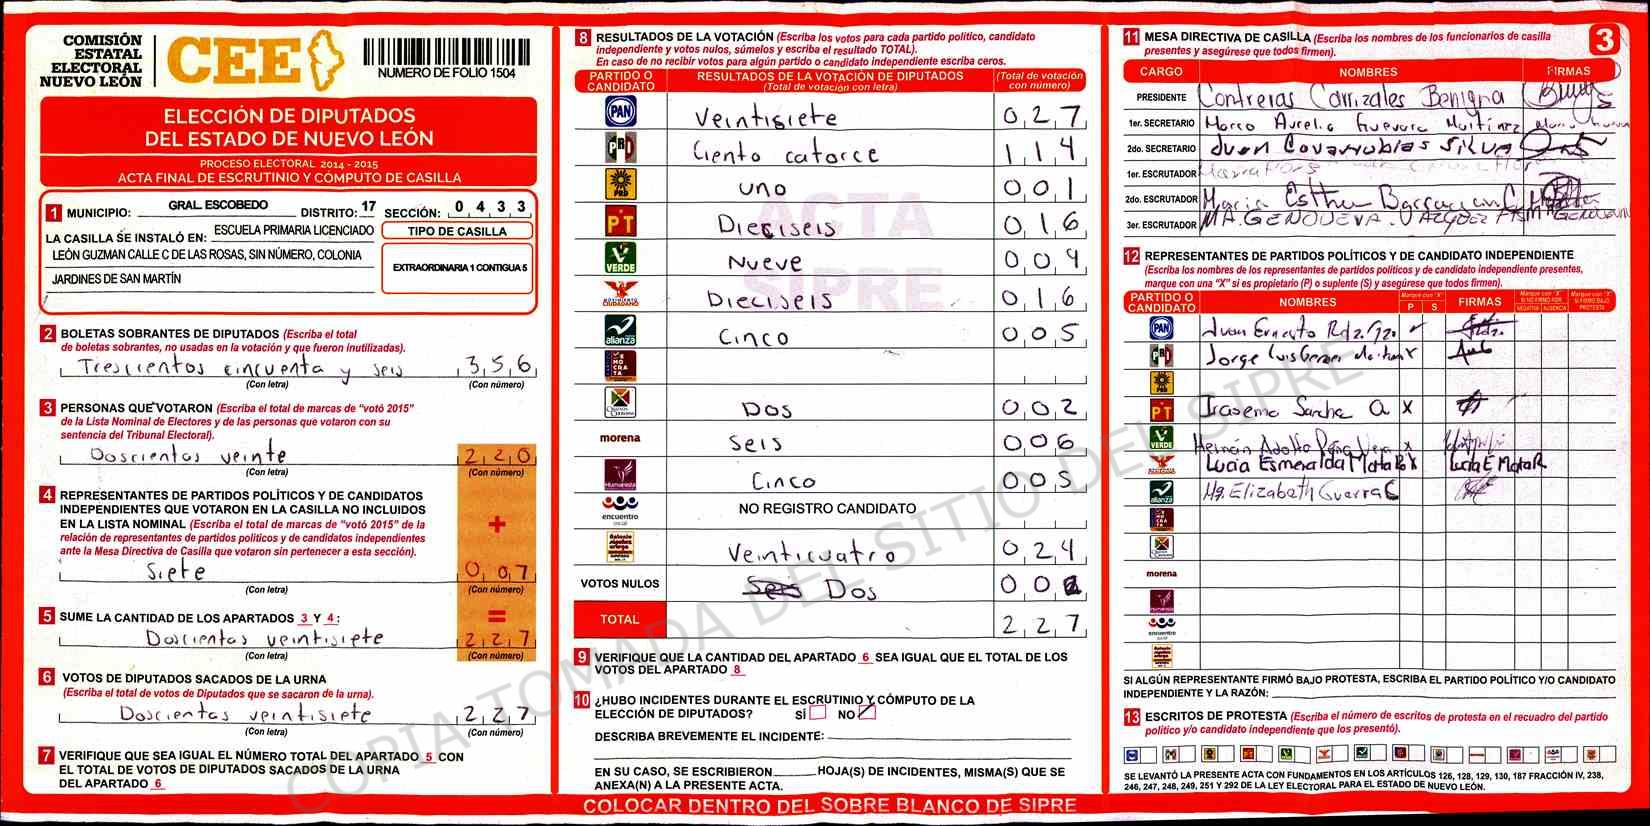 COMISIÓN
ESTATAL
ELECTORAL
NUEVO LEÓN
CEE
NUMERO DE FOLIO 1504
ELECCIÓN DE DIPUTADOS
DEL ESTADO DE NUEVO LEÓN
PROCESO ELECTORAL 2014 - 2015
ACTA FINAL DE ESCRUTINIO Y CÓMPUTO DE CASILLA
1 MUNICIPIO: GRAL. ESCOBEDO DISTRITO: 17 SECCIÓN: 0 4 3 3
LA CASILLA SE INSTALÓ EN: ESCUELA PRIMARIA LICENCIADO
LEÓN GUZMAN CALLE C DE LAS ROSAS, SIN NÚMERO, COLONIA
JARDINES DE SAN MARTÍN
TIPO DE CASILLA
EXTRAORDINARIA 1 CONTIGUA 5
2 BOLETAS SOBRANTES DE DIPUTADOS (Escriba el total
de boletas sobrantes, no usadas en la votación y que fueron inutilizadas).
Trescientos cincuenta y seis 3 5 6
(Con letra) (Con número)
3 PERSONAS QUE VOTARON (Escriba el total de marcas de “votó 2015”
de la Lista Nominal de Electores y de las personas que votaron con su
sentencia del Tribunal Electoral).
Doscientos veinte 2 2 0
(Con letra) (Con número)
4 REPRESENTANTES DE PARTIDOS POLÍTICOS Y DE CANDIDATOS
INDEPENDIENTES QUE VOTARON EN LA CASILLA NO INCLUIDOS
EN LA LISTA NOMINAL (Escriba el total de marcas de “votó 2015” de la
relación de representantes de partidos políticos y de candidatos independientes
ante la Mesa Directiva de Casilla que votaron sin pertenecer a esta sección).
+
Siete 0 0 7
(Con letra) (Con número)
5 SUME LA CANTIDAD DE LOS APARTADOS 3 Y 4: =
Doscientos veintisiete 2 2 7
(Con letra) (Con número)
6 VOTOS DE DIPUTADOS SACADOS DE LA URNA
(Escriba el total de votos de Diputados que se sacaron de la urna).
Doscientos veintisiete 2 2 7
(Con letra) (Con número)
7 VERIFIQUE QUE SEA IGUAL EL NÚMERO TOTAL DEL APARTADO 5 CON
EL TOTAL DE VOTOS DE DIPUTADOS SACADOS DE LA URNA
DEL APARTADO 6
8 RESULTADOS DE LA VOTACIÓN (Escriba los votos para cada partido político, candidato
independiente y votos nulos, súmelos y escriba el resultado TOTAL).
En caso de no recibir votos para algún partido o candidato independiente escriba ceros.
PARTIDO O CANDIDATO RESULTADOS DE LA VOTACIÓN DE DIPUTADOS (Total de votación con letra) (Total de votación con número)
PAN Veintisiete 0 2 7
PRD Ciento catorce 1 1 4
PRD uno 0 0 1
PT Dieciseis 0 1 6
VERDE Nueve 0 0 9
MOVIMIENTO CIUDADANO Dieciseis 0 1 6
alianza Cinco 0 0 5
DEMOCRATA
Dos 0 0 2
morena Seis 0 0 6
Humanista Cinco 0 0 5
encuentro social NO REGISTRO CANDIDATO
Veinticuatro 0 2 4
VOTOS NULOS Seis Dos 0 0 2
TOTAL 2 2 7
ACTA
SIPRE
9 VERIFIQUE QUE LA CANTIDAD DEL APARTADO 6 SEA IGUAL QUE EL TOTAL DE LOS
VOTOS DEL APARTADO 8
10 ¿HUBO INCIDENTES DURANTE EL ESCRUTINIO Y CÓMPUTO DE LA
ELECCIÓN DE DIPUTADOS? SÍ NO
DESCRIBA BREVEMENTE EL INCIDENTE:
EN SU CASO, SE ESCRIBIERON HOJA(S) DE INCIDENTES, MISMA(S) QUE SE
ANEXA(N) A LA PRESENTE ACTA.
COLOCAR DENTRO DEL SOBRE BLANCO DE SIPRE
11 MESA DIRECTIVA DE CASILLA (Escriba los nombres de los funcionarios de casilla
presentes y asegúrese que todos firmen).
3
CARGO NOMBRES FIRMAS
PRESIDENTE Contreras Carrizales Benigna
1er. SECRETARIO Marco Aurelio Guevara Martinez
2do. SECRETARIO Juan Covarrubias Silva
1er. ESCRUTADOR
2do. ESCRUTADOR Maria Esther
3er. ESCRUTADOR MA. GENOVEVA VAZQUEZ
12 REPRESENTANTES DE PARTIDOS POLÍTICOS Y DE CANDIDATO INDEPENDIENTE
(Escriba los nombres de los representantes de partidos políticos y de candidato independiente presentes,
marque con una “X” si es propietario (P) o suplente (S) y asegúrese que todos firmen).
PARTIDO O CANDIDATO NOMBRES Marque con "X" P S FIRMAS Marque con "X" SI NO FIRMÓ POR: NEGATIVA AUSENCIA Marque con "X" SI FIRMÓ BAJO PROTESTA
PAN Juan Ernesto Rdz.
PRD Jorge Luis X
PRD
PT Irasema Sanchez X
VERDE Hernán Adolfo Peña Vera X
Lucia Esmeralda Mata R X Lucia E Mata R
alianza Ma. Elizabeth Guerra C
morena
encuentro
SI ALGÚN REPRESENTANTE FIRMÓ BAJO PROTESTA, ESCRIBA EL PARTIDO POLÍTICO Y/O CANDIDATO
INDEPENDIENTE Y LA RAZÓN:
13 ESCRITOS DE PROTESTA (Escriba el número de escritos de protesta en el recuadro del partido
político y/o candidato independiente que los presentó).
SE LEVANTÓ LA PRESENTE ACTA CON FUNDAMENTOS EN LOS ARTÍCULOS 126, 128, 129, 130, 187 FRACCIÓN IV, 238,
246, 247, 248, 249, 251 Y 292 DE LA LEY ELECTORAL PARA EL ESTADO DE NUEVO LEÓN.
COPIA TOMADA DEL SITIO DEL SIPRE